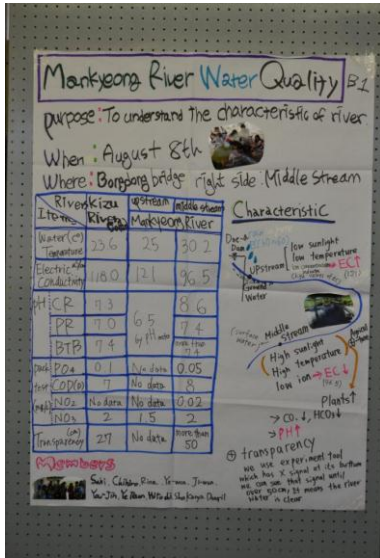 Mankyeong River Water Quality B1
purpose: To understand the characteristic of river
When: August 8th
Where: bridge right side. Middle Stream
River Kizu River upstream middle stream
Items Mankyeong River
Water (c°) Temperature 23.6 25 30.2
Electric Conductivity 118.0 121 96.5
PH CR 7.3 6.5 by PH meter 8.6
PR 7.0 7.4
BTB 7.4 more than 7.4
pack test (mg/l) PO4 0.1 No data 0.05
COD(O) 7 No data 8
NO2 No data No data 0.02
NO3 2 1.5 2
(cm) Transparency 27 No data more than 50
Characteristic
Dam
UPstream
low sunlight
low temperature
EC↑
Ground Water
(surface water)
Middle stream
High sunlight
High temperature
low ion → EC↓
Plants↑
> CO2↓, HCO3↓
> PH↑
transparency
we use experiment tool
which has X signal at its bottom
we can see that signal until
over 50cm, It means the river
water is clear
Members